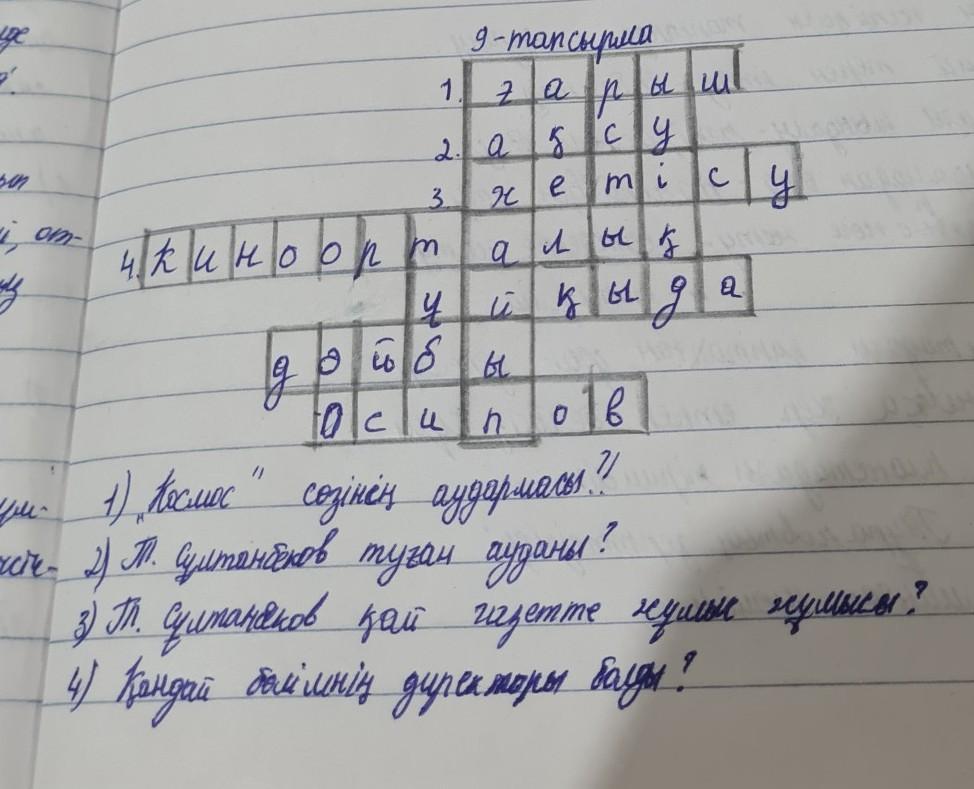 9-тапсырма
1. ғарыш
2. ақсу
3 жетісу
4. киноорталық
ұйқыда
дойбы
Осипов
1) „Космос" сөзінің аудармасы?
2) Т. Сұлтанбеков туған ауданы?
3) Т. Сұлтанбеков қай газетте жұмыс жұмысы?
4) Қандай бөлімнің директоры болды?
ом-